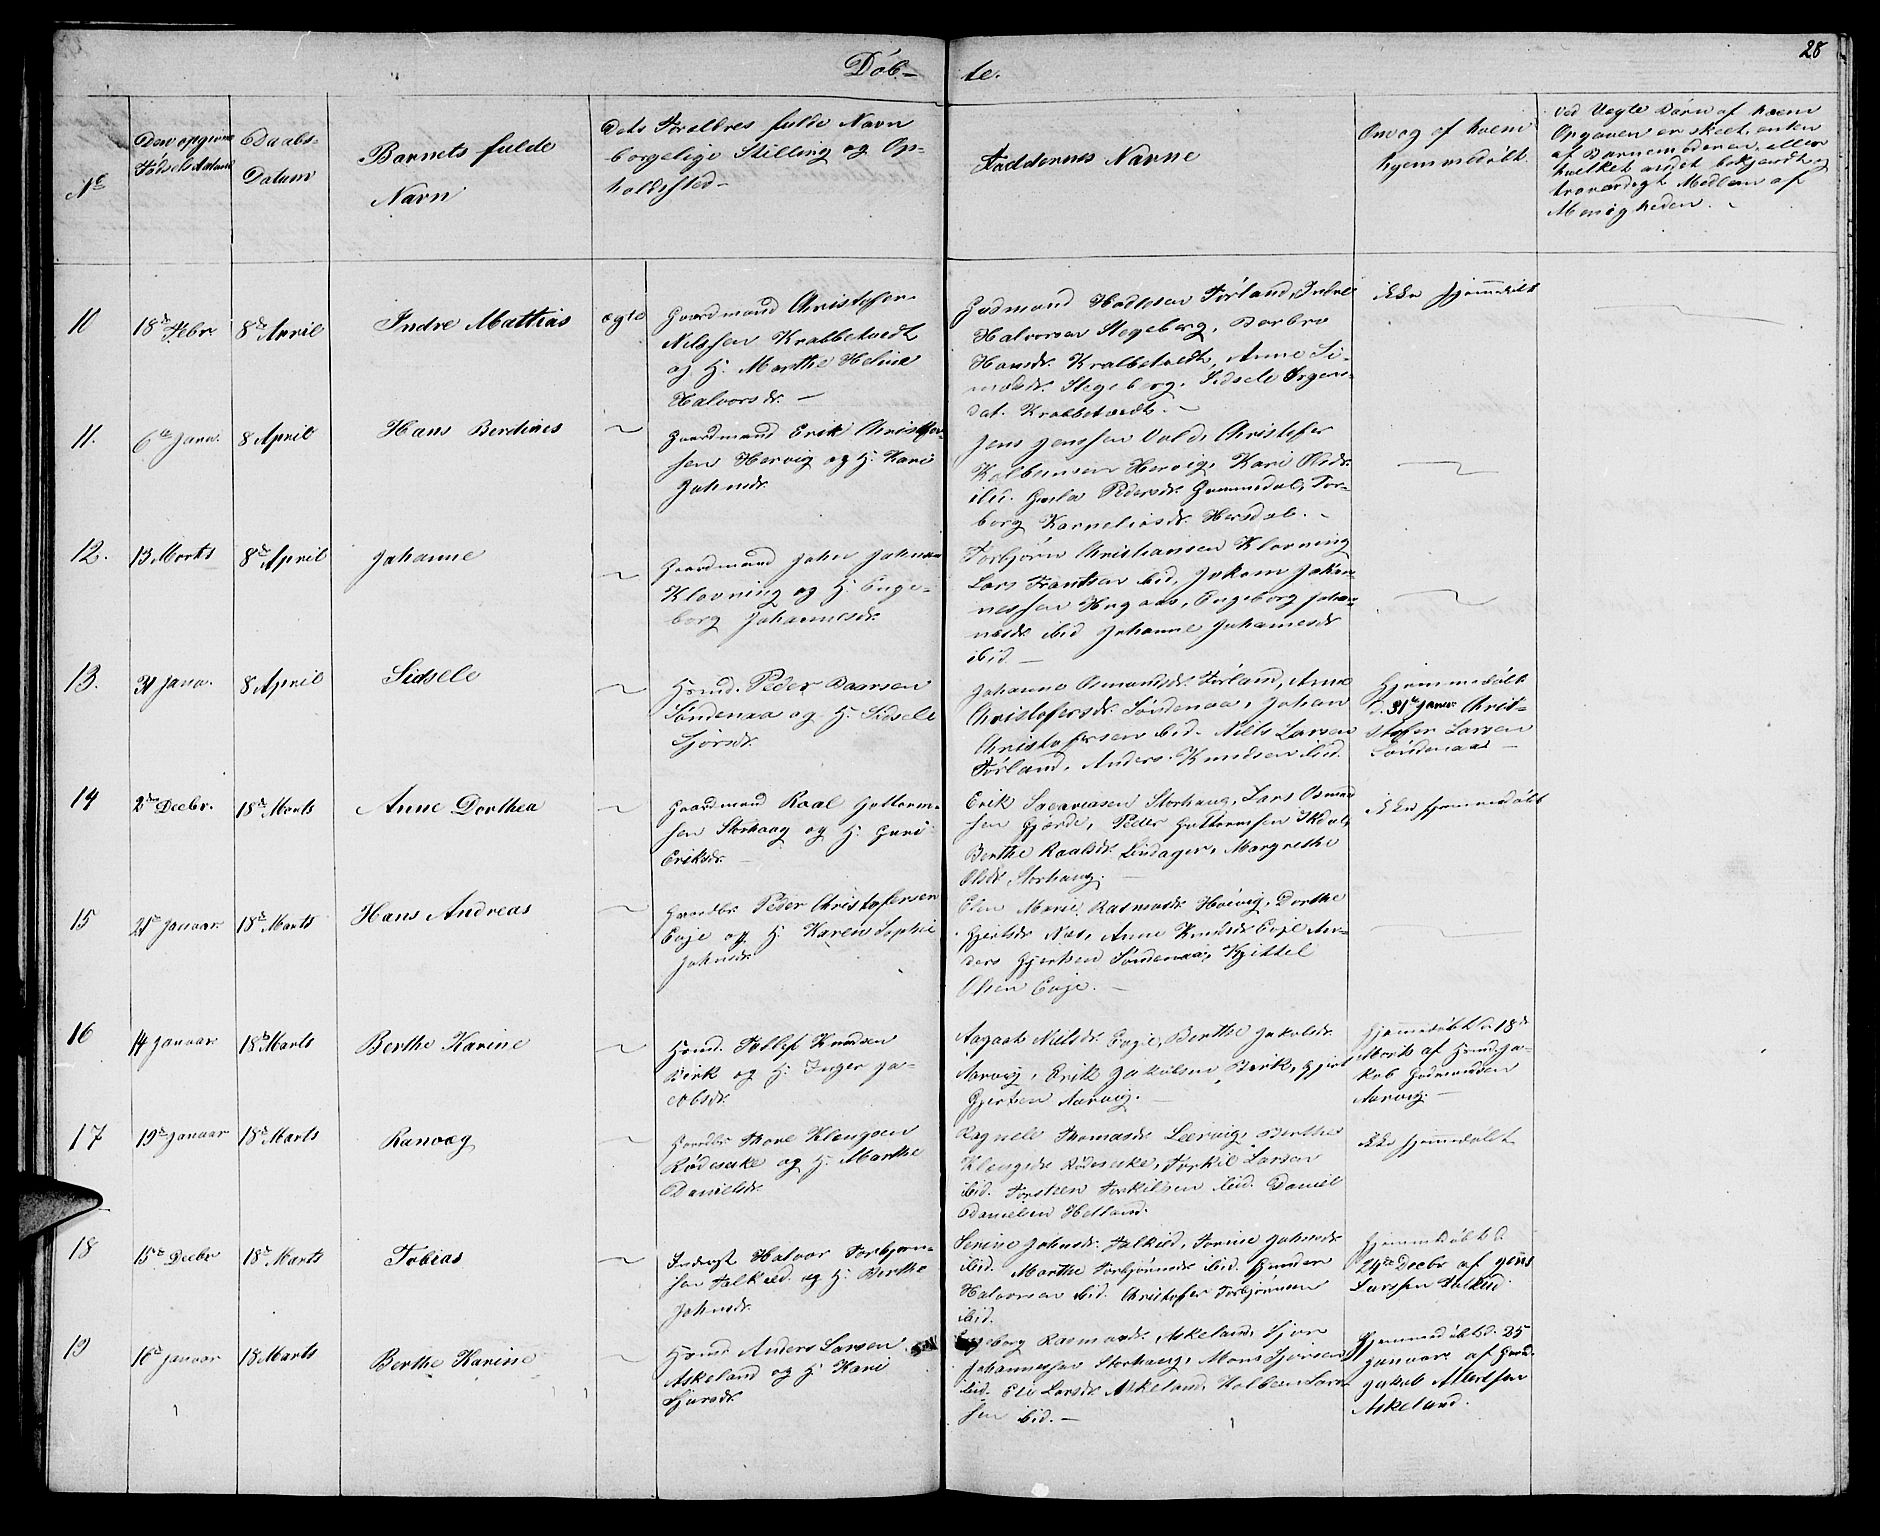 28
Døb-
te.
No
Den opgivne
Fødsels Datum
Daabs-
Datum
Barnets fulde
Navn
Dets Forældres fulde Navn
borgelige Stilling og Op-
holdssted-
Faddernes Navne
Om og af hvem
hjemmedøbt.
Ved Uægte Børn af hvem
Opgaven er skeet, enten
af Barnemoderen, eller
hvilket andet bekjendt og
troværdigt Medlem af
Menigheden.
10
18de Febr.
8de April
Indre Mathias
ægte
Gaardmand Christofer
Nilssen Krabbetvedt
og H: Marthe Heline
Halvorsdr. -
Gudmand Hadlesen Førland,
Halvorsen Stegeberg, Barbro
Hansdr. Krabbetvedt, Anne Si-
monsdr. Stegeberg, Sidsele
dat. Krabbetvedt. -
ikke hjemmedøbt
11.
6te Janu.
8 April
Hans Berdines
Gaardmand Erik Christofer-
sen Hervig og H: Kari
Johnsdr.
Jens Jenssen Vold, Christofer
Kolbensen Hervig, Kari Olsdr.
ibid. Pedersdr. Gummedal, Tor-
borg Karneliusdr. Hersdal. -
12.
13 Marts
8de April
Johanne
Gaardmand John Johnsen
Klovning og H: Enge-
borg Johannesdr.
Torbjørn Christiansen Klovning
Lars Frantsen ibid, Jokom Johan-
nessen Hugaas, Engeborg Johan-
nesdr. ibid Johanne Johannesdr
ibid -
13.
31 Janu.
8 April
Sidsele
Huusmd. Peder Baarsen
Søndenaa og H: Sidsele
Sjørsdr.
Johanne Osmundsdr. Førland, Anne
Christofersdr. Søndenaa, Johan
Christofersen ibid. Niels Larsen
Førland, Anders Knudsen ibid.
Hjemmedøbt
d. 31te Janu. Christ-
stofer Larsen
Søndenaa -
14
2den Decbr.
18de Marts
Anne Dorthea
Gaardmand Roal Guttorm-
sen Storhaug og H: Guri
Eriksdr. -
Erik Sacariasen Storhaug, Lars Osmund
sen Gjerde, Peder Guttormsen Ikdal,
Berthe Roalsdr. Lindager, Margrethe
Olsdr. Storhaug. -
ikke hjemmedøbt
15
21de Januar
18de Marts
Hans Andreas
Gaardbr. Peder Christofersen
Evje og H: Karen Sophie
Johnsdr.
Elen Marie Rasmusdr. Høivig, Dorthe
Gjertsdr. Næs, Anne Knudsdr. Evje An-
ders Gjertsen Søndenaa, Kjittel
Olsen Evje. -
16
14 Januar
18de Marts
Berthe Karine
Huusmd. Tollef Knudsen
Birk og H: Inger Ja-
cobsdr.
Aagaat Nielsdr. Evje, Berthe Jakobsdr.
Aarvig, Erik Jakobsen Birk, Gjert
Gjertsen Aarvig. -
Hjemmedøbt d. 18de
Marts af Huusmd. Ja-
kob Gudmunden
Aarvig. -
17
19de Januar
18de Marts
Ranvog
Gaardbr. Thore Klengsen
Rødesike og H: Marthe
Danielsdr.
Ragnele Thomasdr. Leervig, Berthe
Klengsdr. Rødesike, Torkil Larsen
ibid. Torsten Torkilsen ibid. Daniel
Danielsen Hetland.
ikke hjemmedøbt
18
15de Decbr
18de Marts
Tobias
Inderst Halvor Torbjørn-
sen Falkeid og H: Berthe
Johnsdr.
Serine Johnsdr. Falkeid, Torine Johnsdr.
ibid. Marthe Torbjørnsdr. ibid. Gunder
Halvorsen ibid. Christofer Torbjørnsen
ibid.
Hjemmedøbt d.
24de Decbr af Jens
Larssen Falkeid.
19
16de Januar
18 Marts
Berthe Karine
Huusmd Anders Larsen
Askeland og H: Kari
Sjursdr.
Engeborg Rasmusdr. Askeland, Sjur
Johannessen Storhaug, Mons Sjursen
ibid. Eli Larsdr. Askeland, Kolben Lar-
sen ibid. -
Hjemmedøbt d. 25
Januar af
Jakob Albertsen
Askeland.